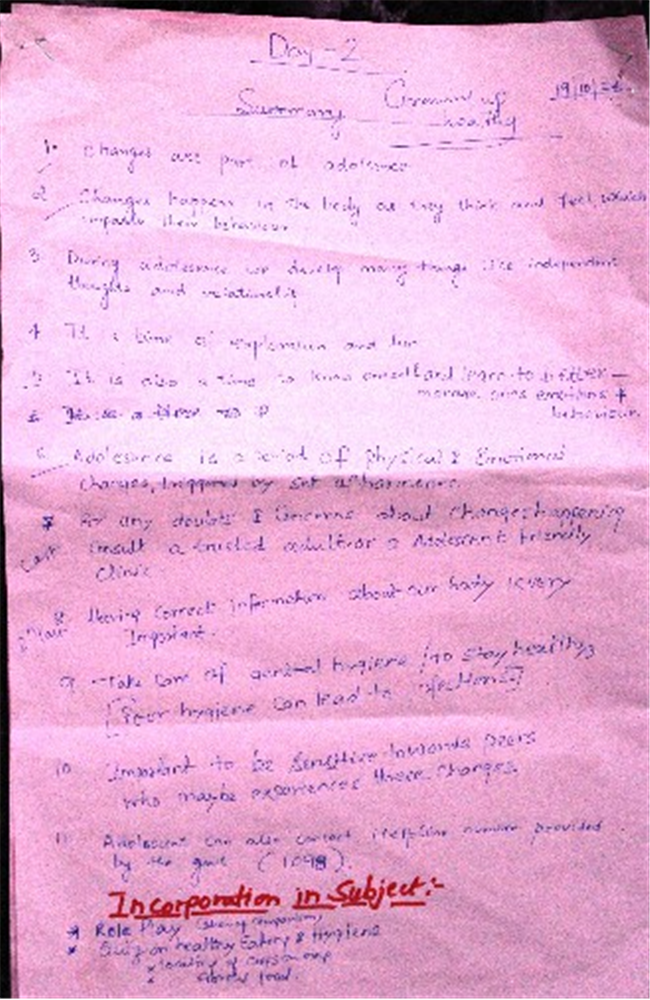 Day-2
19/10/24
Summary Growing up
healthy
1. Changes are part of adolesence
2 Changes happen in the body as they think and feel, which
impacts their behaviour
3 During adolesence we develop many things like independent
thoughts and relationship
4 It is time of exploration and fun
5 It is also a time to know oneself and learn to
manage ones emotions &
behaviour
6 Adolesence is a period of physical & Emotional
Changes, triggered by set of harmones
7 For any doubts & Concerns about changes happening
Last Consult a trusted adult or a Adolescent Friendly
Clinic
8 Having Correct information about our body is very
Important.
9 Take care of general hygiene to stay healthy
[Poor hygiene can lead to infections]
10 Important to be sensitive towards peers
who maybe experiences these changes.
11 Adolescent can also contact helpline number provided
by the govt (1098).
Incorporation in Subject:-
* Role Play
* Quiz on healthy Eating & Hygiene
* locating of crops on map